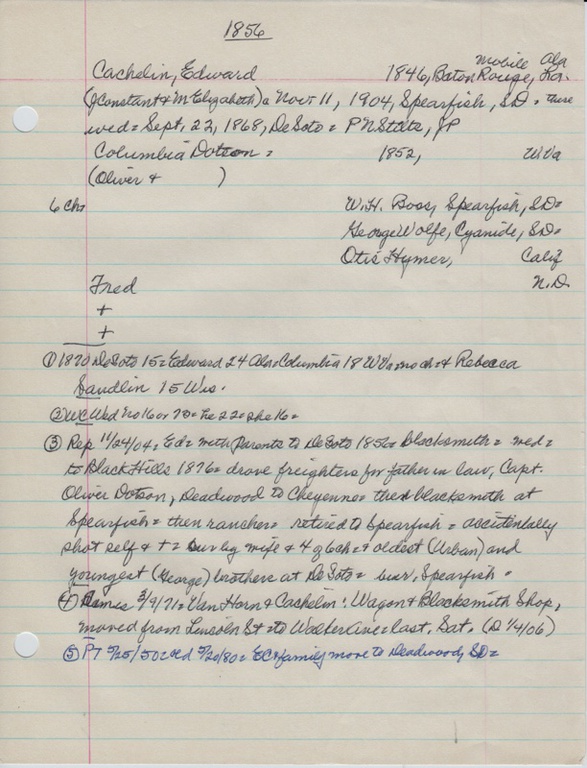 1856
Mobile Ala
Cachelin, Edward 1846, Baton Rouge, La.
(J Constant & M Elizabeth) = Nov 11, 1904, Spearfish, SD = there
wed = Sept. 22, 1868, DeSoto = P N State, JP
Columbia Dotson = 1852, W Va
(Oliver & )
6 Ch = W. H. Boss, Spearfish, SD =
George Wolfe, Cyanide, SD =
Otis Hymer, Calif
Fred N.D.
+
+
① 1870 DeSoto 15 = Edward 24 Ala = Columbia 18 W Va = no ch = & Rebecca
Sandlin 15 Wis.
② WC Wed no 16 or 70 = he 22 = she 16 =
③ Rep 11/24/04 = Ed = with parents to DeSoto 1856 = blacksmith = wed =
to Black Hills 1876 = drove freighters for father in law, Capt.
Oliver Dotson, Deadwood to Cheyenne = then blacksmith at
Spearfish = then rancher = retired to Spearfish = accidentally
shot self & + = surv by wife & 4 of 6 ch = & oldest (Urban) and
youngest (George) brothers at DeSoto = bur, Spearfish =
④ 3/9/71 = Van Horn & Cachelin: Wagon & Blacksmith Shop,
moved from Lincoln St = to Walker Ave = last. Sat. (D 1/4/06)
⑤ PT 5/25/50 = od 5/20/80 = EC & family move to Deadwood, SD =